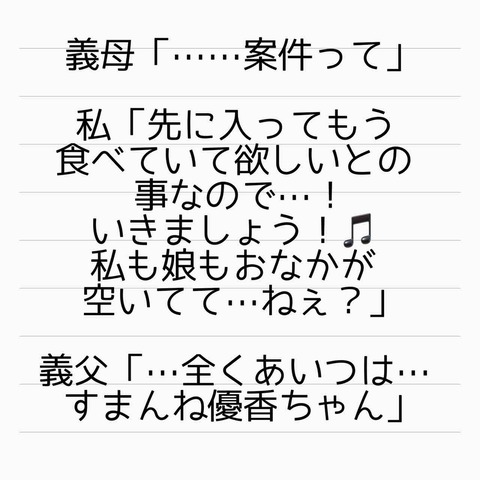 義母「……案件って」
私「先に入ってもう
食べていて欲しいとの
事なので…！
いきましょう！🎵
私も娘もおなかが
空いてて…ねぇ？」
義父「…全くあいつは…
すまんね優香ちゃん」